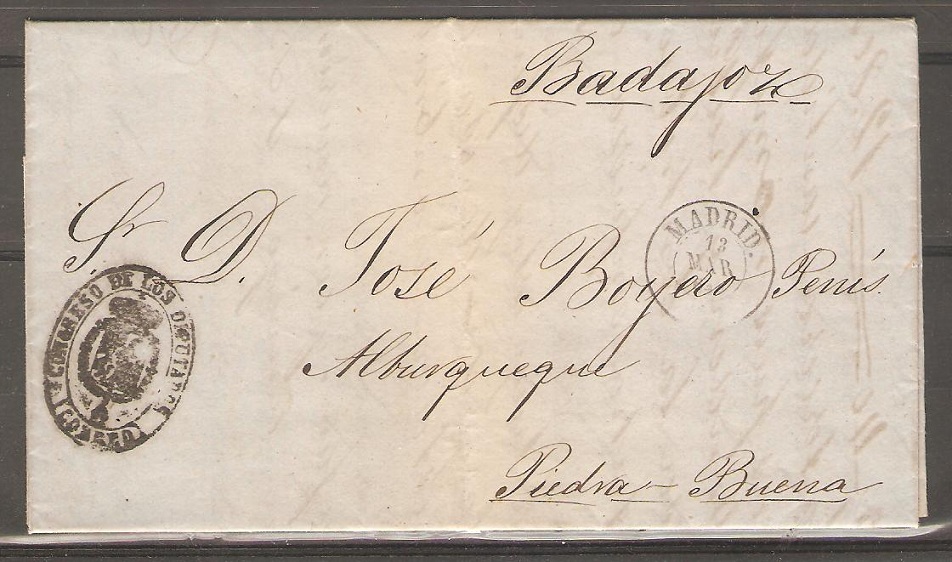 Badajoz
Sr. D. José Boyero Penis.
MADRID.
13
MAR
CONGRESO DE LOS DIPUTADOS
CORREO
Alburquerque
Piedra-Buena